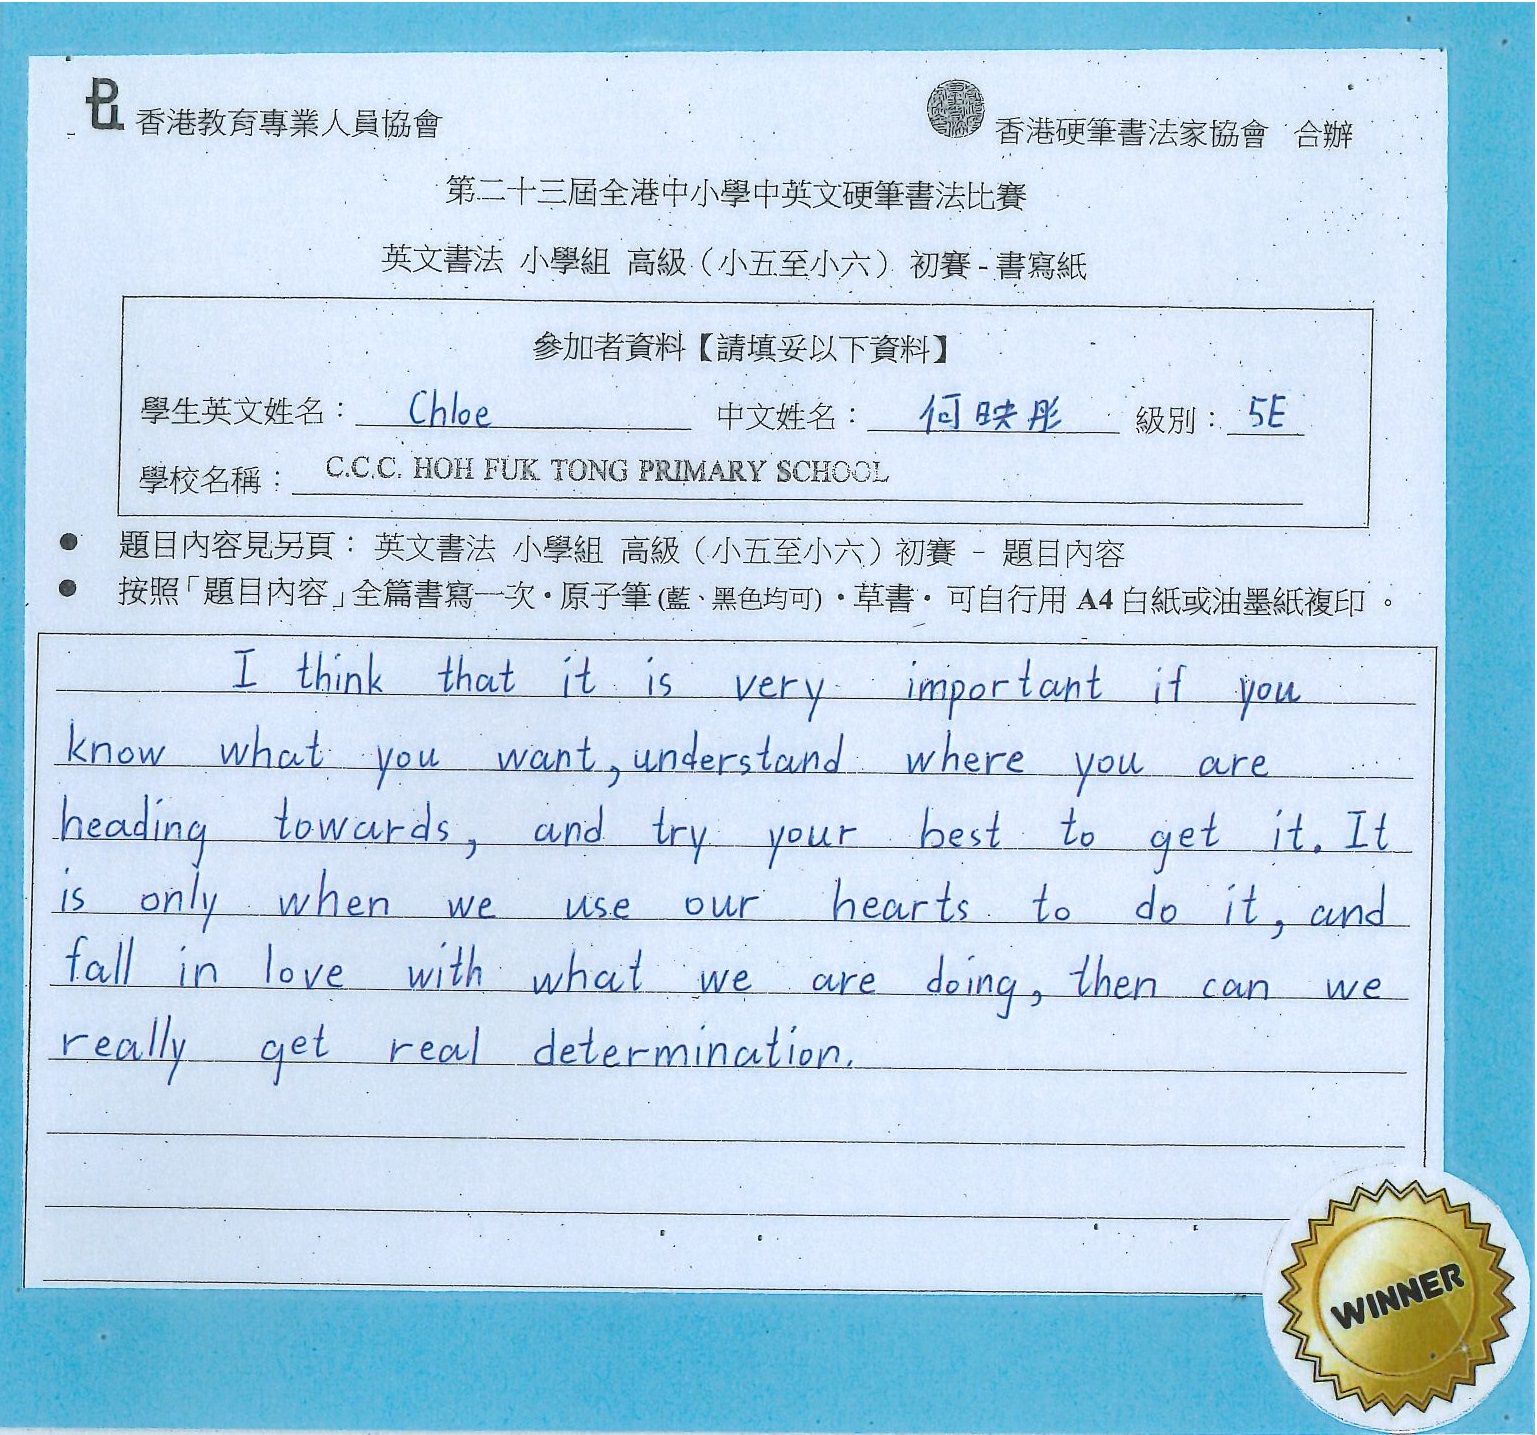 香港教育專業人員協會
香港硬筆書法家協會 合辦
第二十三屆全港中小學中英文硬筆書法比賽
英文書法 小學組 高級（小五至小六） 初賽 - 書寫紙
參加者資料【請填妥以下資料】
學生英文姓名： Chloe 中文姓名： 何映彤 級別： 5E
學校名稱： C.C.C. HOH FUK TONG PRIMARY SCHOOL
● 題目內容見另頁： 英文書法 小學組 高級（小五至小六）初賽 - 題目內容
● 按照「題目內容」全篇書寫一次・原子筆(藍、黑色均可)・草書・可自行用 A4 白紙或油墨紙複印。
I think that it is very important if you
know what you want, understand where you are
heading towards, and try your best to get it. It
is only when we use our hearts to do it, and
fall in love with what we are doing, then can we
really get real determination.
WINNER